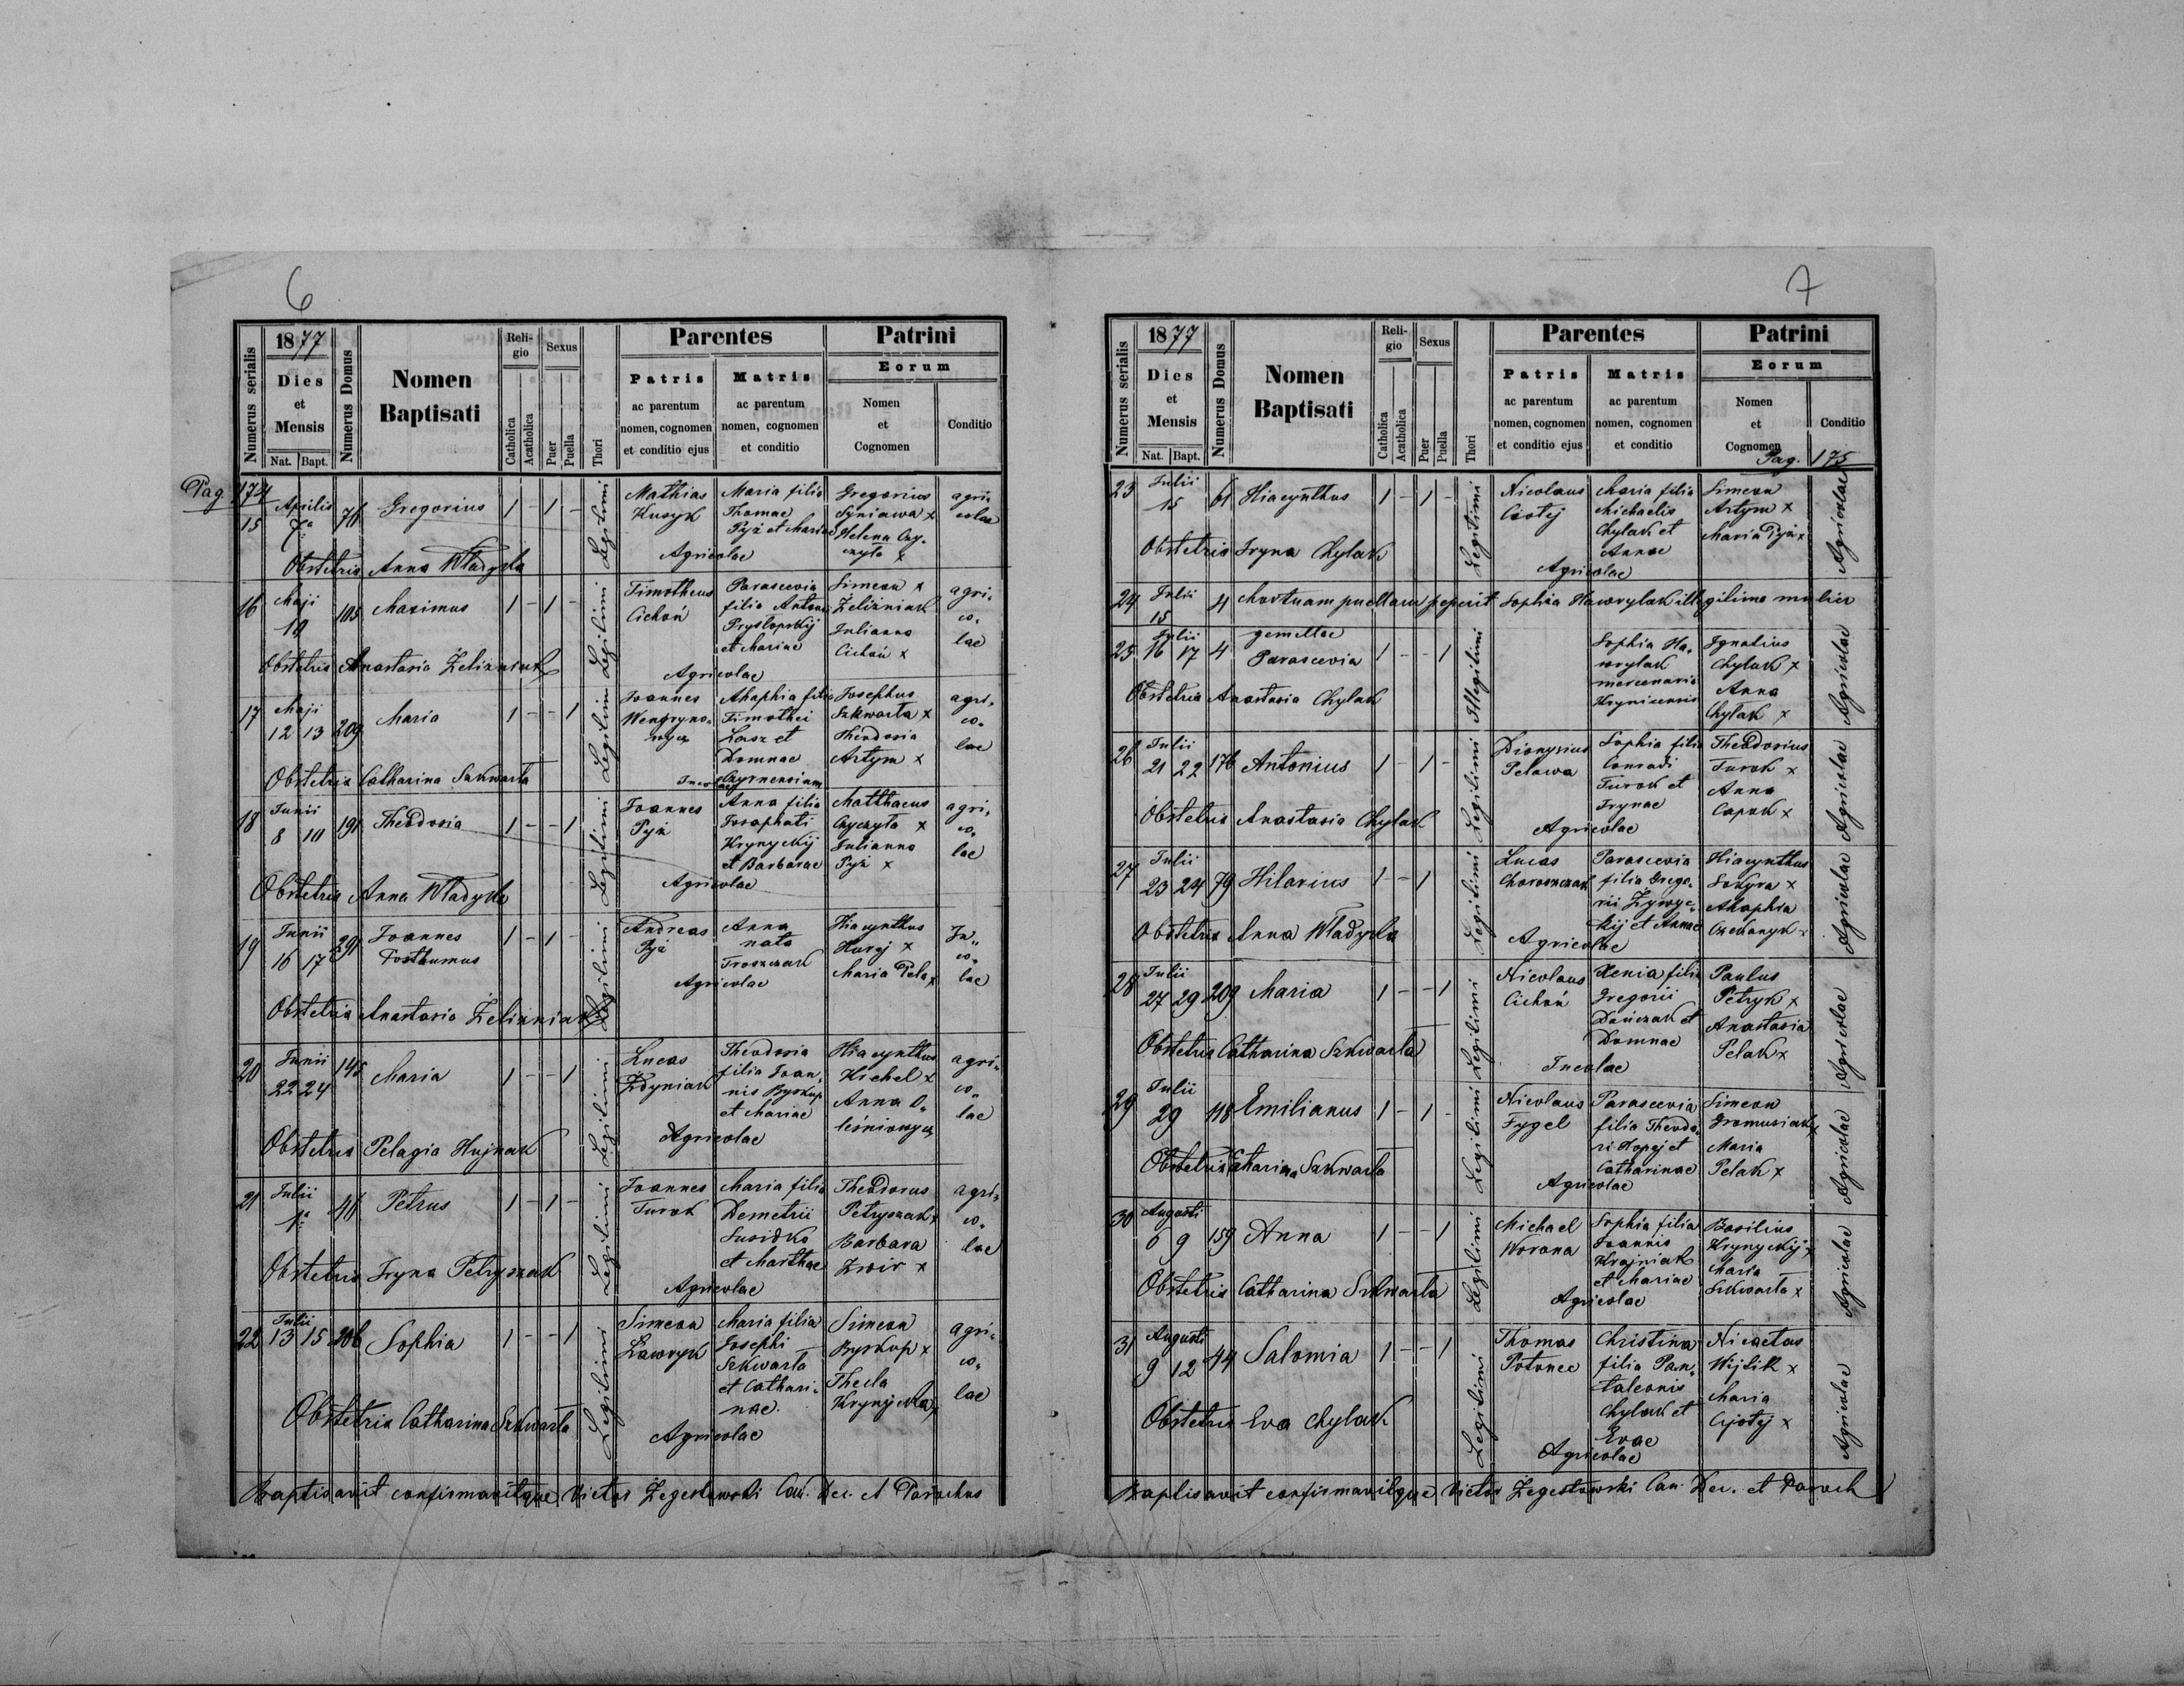 6
Numerus serialis
1877
Dies et Mensis
Nat. Bapt.
Numerus Domus
Nomen Baptisati
Religio
Catholica
Acatholica
Sexus
Puer
Puella
Thori
Parentes
Patris
ac parentum
nomen, cognomen
et conditio ejus
Matris
ac parentum
nomen, cognomen
et conditio
Patrini
Eorum
Nomen
et
Cognomen
Conditio
Pag 174
15 Aprilis 7a 76 Gregorius 1 - 1 - Legitimi
Mathias
Kusyk
Maria filia
Thomae
Pyż et Mariae
Agricolae
Gregorius
Syniawa x
Helena Czy-
czyło x
agri-
colae
Obstetrix Anna Wladyka
16 Maji 105 Maximus 1 - 1 - Legitimi
Timotheus
Cichoń
Parascevia
filia Antonii
Prysłopskij
et Mariae
Agricolae
Simeon x
Żeliżniak
Julianna
Cichoń x
agri-
co-
lae
Obstetrix Anastasia Żeliżniak
17 Maji 12 13 209 Maria 1 - - 1 Legitimi
Joannes
Ahaphia filia
Timothei
Łasz et
Domnae
Josephus
Szkwarła x
Theodosia
Artym x
agri-
co-
lae
Obstetrix Catharina Szkwarła
18 Junii 8 10 191 Theodosia 1 - - 1 Legitimi
Joannes
Pyż
Anna filia
Josaphati
Krynyckij
et Barbarae
Agricolae
Matthaeus
Czyczyła x
Julianna
Pyż x
agri-
co-
lae
Obstetrix Anna Wladyka
19 Junii 16 17 291 Joannes
Posthumus 1 - 1 - Legitimi
Andreas
Pyż
Anna
nata
Troszczak
Agricolae
Hiacynthus
Huraj x
Maria Pela x
In-
co-
lae
Obstetrix Anastasia Żeliżniak
20 Junii 22 24 145 Maria 1 - - 1 Legitimi
Lucas
Żdyniak
Theodosia
filia Joan-
nis Byskup
et Mariae
Agricolae
Hiacynthus
Kichel x
Anna O-
leśniowycz
agri-
co-
lae
Obstetrix Pelagia Hujnak
21 Julii 1a 46 Petrus 1 - 1 - Legitimi
Joannes
Turok
Maria filia
Demetrii
Susidko
et Marthae
Agricolae
Theodorus
Petryszak x
Barbara
Zwir x
agri-
co-
lae
Obstetrix Iryna Petryszak
22 Julii 13 15 206 Sophia 1 - - 1 Legitimi
Simeon
Ławryk
Maria filia
Josephi
Szkwarła
et Cathari-
nae
Agricolae
Simeon
Byskup x
Thecla
Krynycka x
agri-
co-
lae
Obstetrix Catharina Szkwarła
Baptisavit confirmavitque Victor Żegestowski Can. Dec. et Parochus
7
Numerus serialis
1877
Dies et Mensis
Nat. Bapt.
Numerus Domus
Nomen Baptisati
Religio
Catholica
Acatholica
Sexus
Puer
Puella
Thori
Parentes
Patris
ac parentum
nomen, cognomen
et conditio ejus
Matris
ac parentum
nomen, cognomen
et conditio
Patrini
Eorum
Nomen
et
Cognomen
Conditio
Pag. 175
23 Julii 15 61 Hiacynthus 1 - 1 - Legitimi
Nicolaus
Maria filia
Michaelis
Chylak et
Annae
Agricolae
Simeon
Artym x
Maria Pyż x
Agricolae
Obstetrix Iryna Chylak
24 Julii 15 4 Mortuam puellam peperit Sophia Hawrylak illegitima mulier
25 Julii 16 17 4 gemellae
Parascevia 1 - - 1 Illegitimi
Sophia Ha-
wrylak
mercenaria
Krynicensis
Ignatius
Chylak x
Anna
Chylak x
Agricolae
Obstetrix Anastasia Chylak
26 Julii 21 22 176 Antonius 1 - 1 - Legitimi
Dionysius
Pelawa
Sophia filia
Conradi
Turok et
Irynae
Agricolae
Theodosius
Turok x
Anna
Capok x
Agricolae
Obstetrix Anastasia Chylak
27 Julii 23 24 79 Hilarius 1 - 1 Legitimi
Lucas
Choroszczak
Parascevia
filia Grego-
rii Żywyc-
kij et Annae
Agricolae
Hiacynthus
Sokyra x
Ahaphia
Agricolae
Obstetrix Anna Wladyka
28 Julii 27 29 209 Maria 1 - - 1 Legitimi
Nicolaus
Cichoń
Xenia filia
Gregorii
Dańczak et
Domnae
Incolae
Paulus
Petryk x
Anastasia
Pelak x
Agricolae
Obstetrix Catharina Szkwarła
29 Julii 29 118 Emilianus 1 - 1 - Legitimi
Nicolaus
Fygel
Parascevia
filia Theodo-
ri Kopej et
Catharinae
Agricolae
Simeon
Gromusiak x
Maria
Pelak x
Agricolae
Obstetrix Catharina Szkwarła
30 Augusti 6 9 159 Anna 1 - - 1 Legitimi
Michael
Worona
Sophia filia
Joannis
Krajniak
et Mariae
Agricolae
Basilius
Krynyckij x
Maria
Szkwarła x
Agricolae
Obstetrix Catharina Szkwarła
31 Augusti 9 12 44 Salomia 1 - - 1 Legitimi
Thomas
Polonec
Christina
filia Pan-
taleonis
Chylak et
Evae
Agricolae
Nicaetas
Wijlik x
Maria
Agricolae
Obstetrix Eva Chylak
Baptisavit confirmavitque Victor Żegestowski Can. Dec. et Paroch